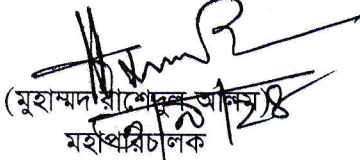 (মুহাম্মদ রাশেদুল আলম)
মহাপরিচালক